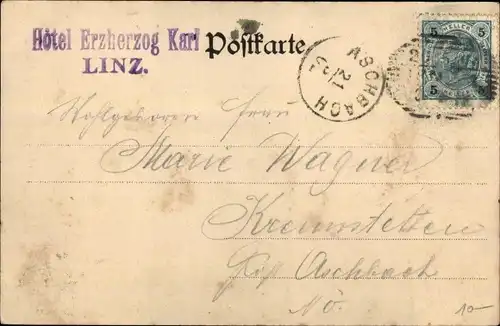 Hôtel Erzherzog Karl
LINZ.
Postkarte
ASCHBACH
21
5 HELLER 5
5 5
Wohlgeboren Frau
Marie Wagner
Krennstetten
Aschbach
N.Ö.
10-